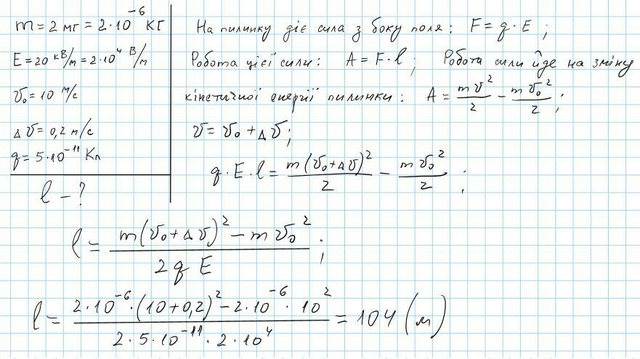 m = 2 мг = 2·10⁻⁶ кг
E = 20 кВ/м = 2·10⁴ В/м
υ₀ = 10 м/с
Δυ = 0,2 м/с
q = 5·10⁻¹¹ Кл
l - ?
На пилинку діє сила з боку поля: F = q·E;
Робота цієї сили: A = F·l; Робота сили йде на зміну
кінетичної енергії пилинки: A = mυ²/2 - mυ₀²/2;
υ = υ₀ + Δυ;
q·E·l = m(υ₀+Δυ)²/2 - mυ₀²/2;
l = (m(υ₀+Δυ)² - mυ₀²)/(2qE);
l = (2·10⁻⁶·(10+0,2)² - 2·10⁻⁶·10²)/(2·5·10⁻¹¹·2·10⁴) = 104 (м)